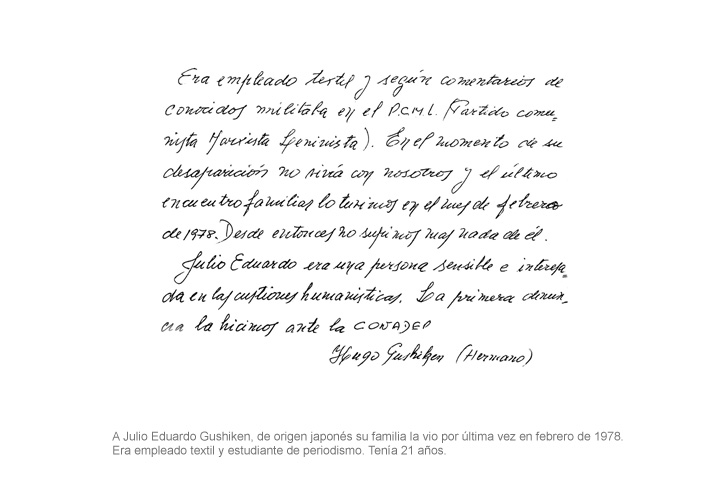 Era empleado textil y según comentarios de
conocidos militaba en el P.C.M.L. (Partido comu-
nista Marxista Leninista). En el momento de su
desaparición no vivía con nosotros y el último
encuentro familiar lo tuvimos en el mes de febrero
de 1978. Desde entonces no supimos mas nada de él.
Julio Eduardo era una persona sensible e interesa-
da en las custiones humanisticas. La primera denun-
cia la hicimos ante la CONADEP
Hugo Gushiken (Hermano)
A Julio Eduardo Gushiken, de origen japonés su familia la vio por última vez en febrero de 1978.
Era empleado textil y estudiante de periodismo. Tenía 21 años.